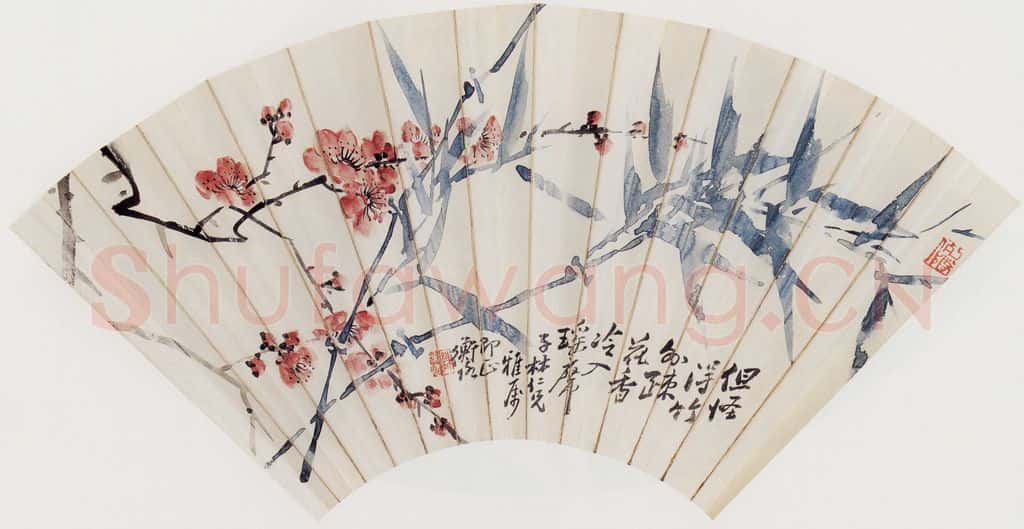 但怪
得竹
外疎
花香
冷入
瑶席
子林仁兄
雅属
即正
衡恪
Shufawang.CN